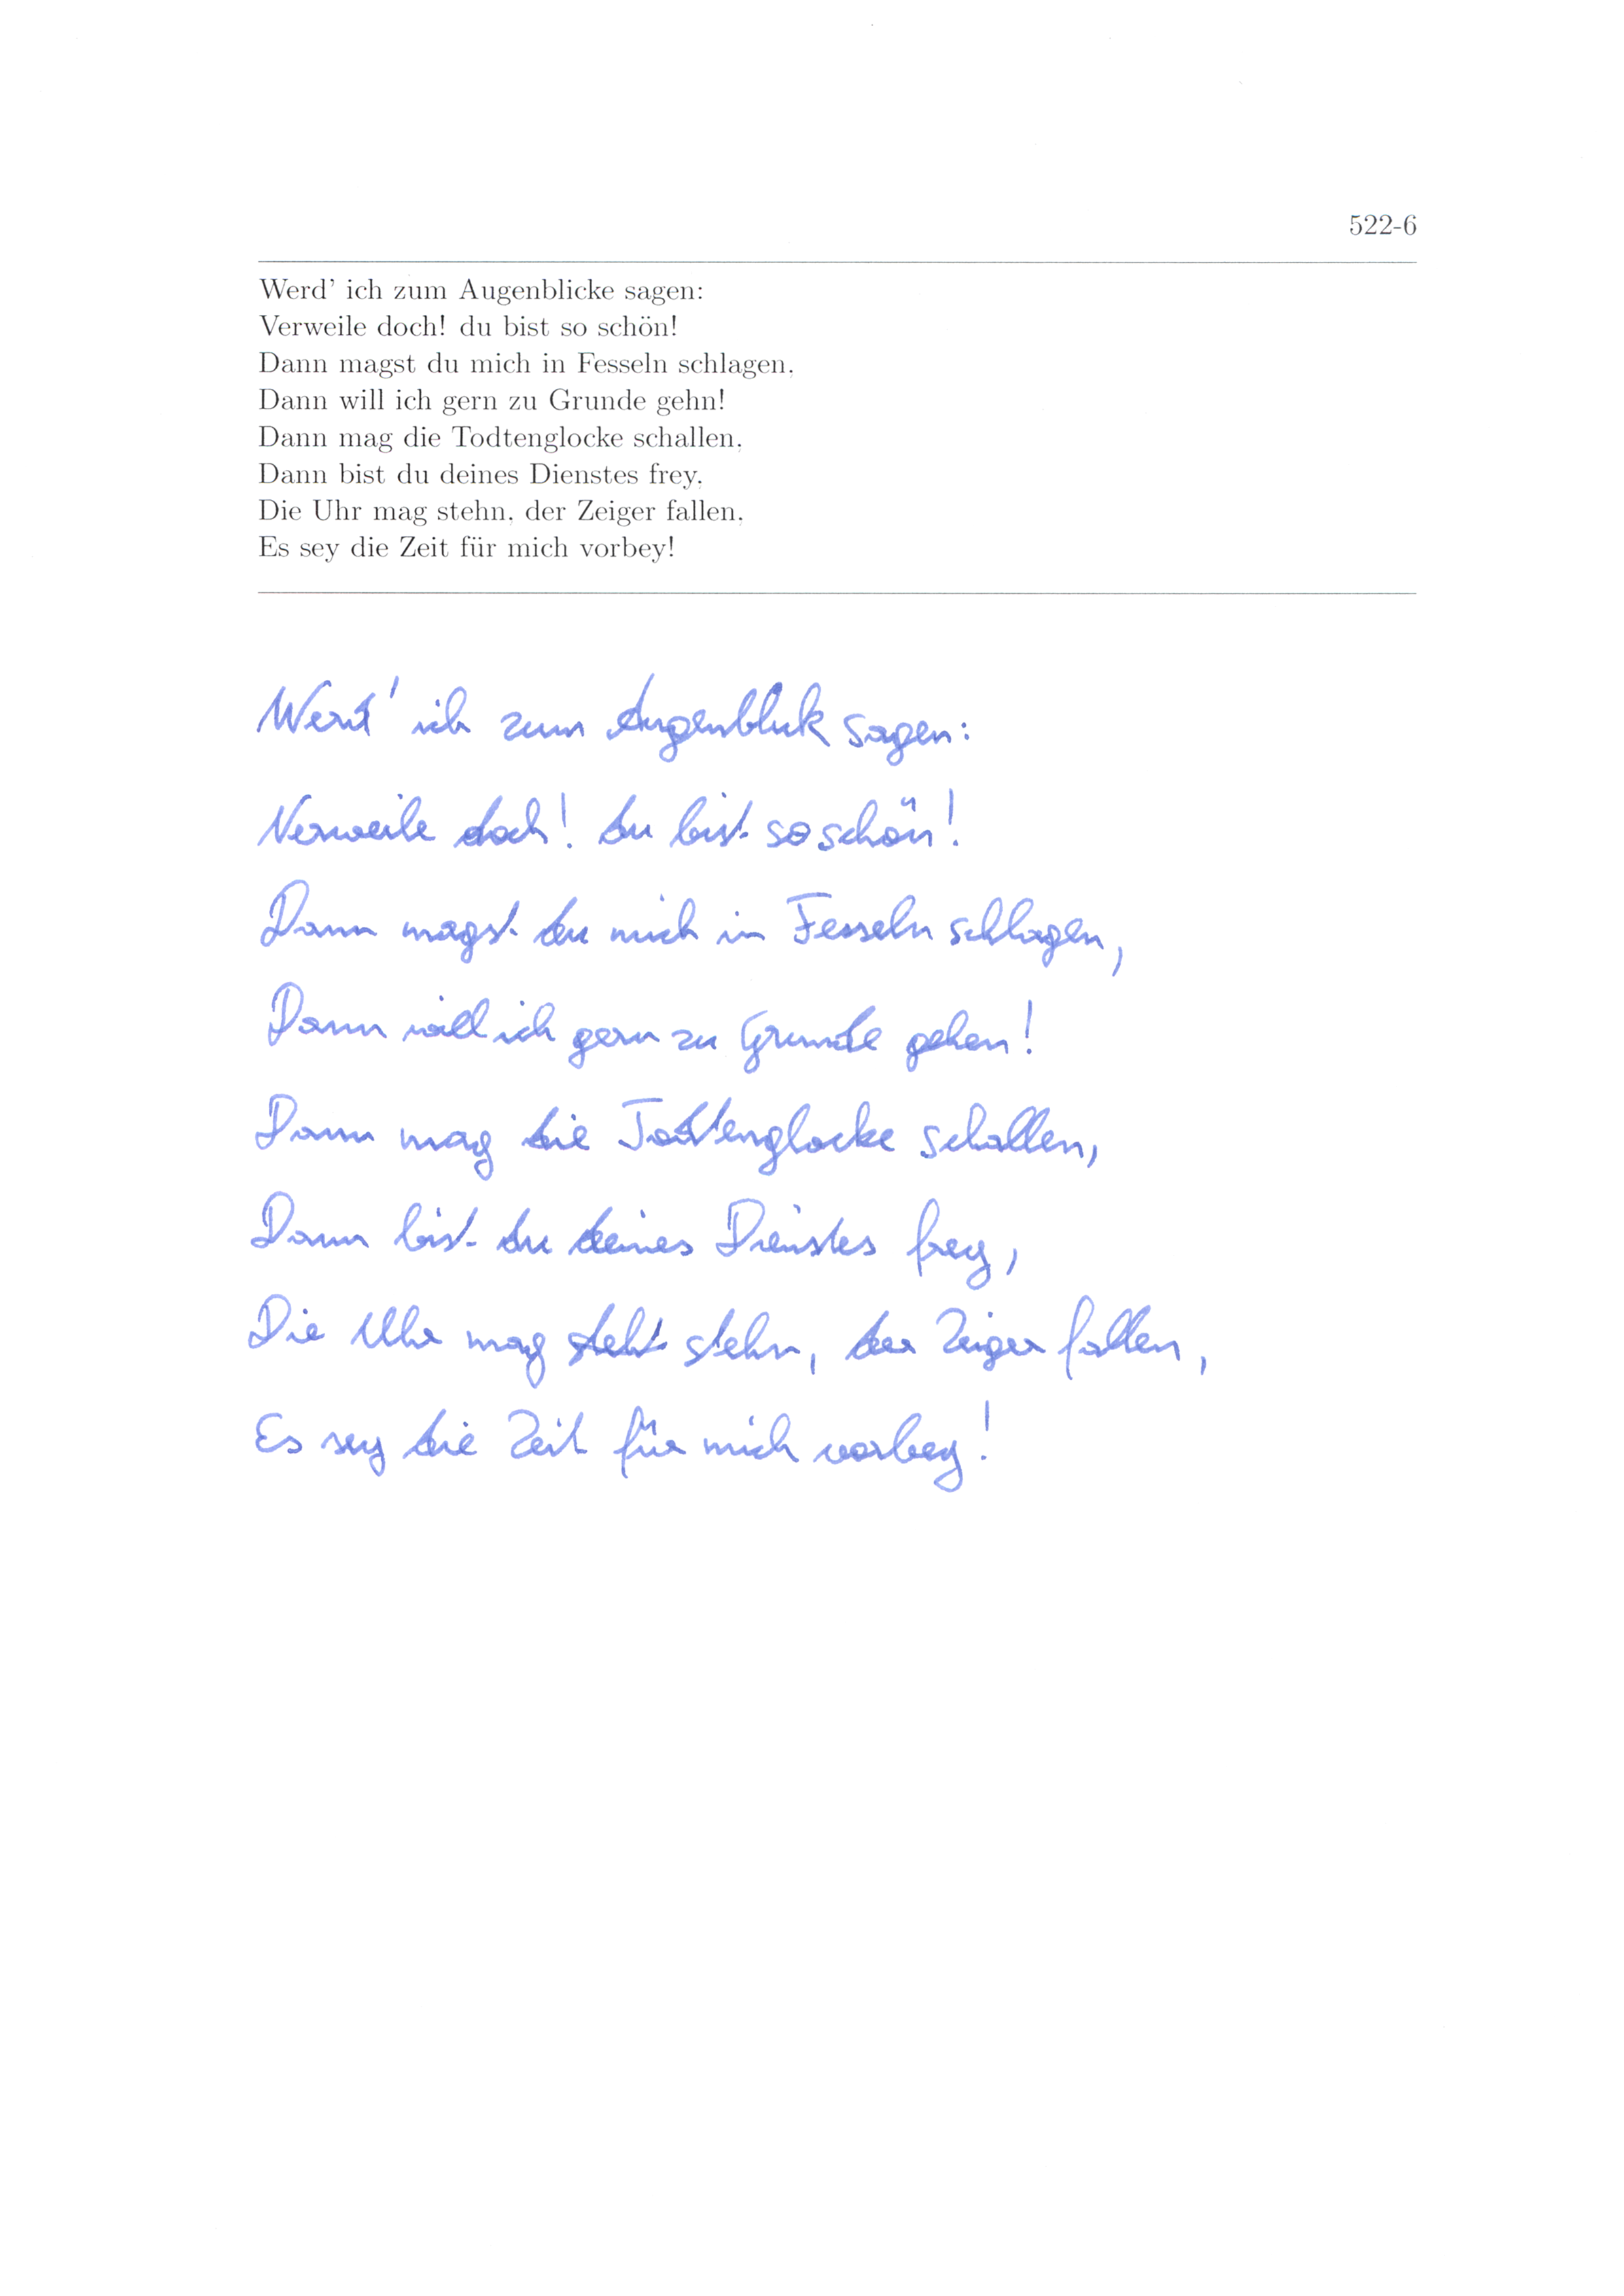 522-6
Werd' ich zum Augenblicke sagen:
Verweile doch! du bist so schön!
Dann magst du mich in Fesseln schlagen,
Dann will ich gern zu Grunde gehn!
Dann mag die Todtenglocke schallen,
Dann bist du deines Dienstes frey,
Die Uhr mag stehn, der Zeiger fallen,
Es sey die Zeit für mich vorbey!
Werd' ich zum Augenblick sagen:
Verweile doch! du bist so schön!
Dann magst du mich in Fesseln schlagen,
Dann will ich gern zu Grunde gehen!
Dann mag die Todtenglocke schallen,
Dann bist du deines Dienstes frey,
Die Uhr mag steht stehn, der Zeiger fallen,
Es sey die Zeit für mich vorbey!